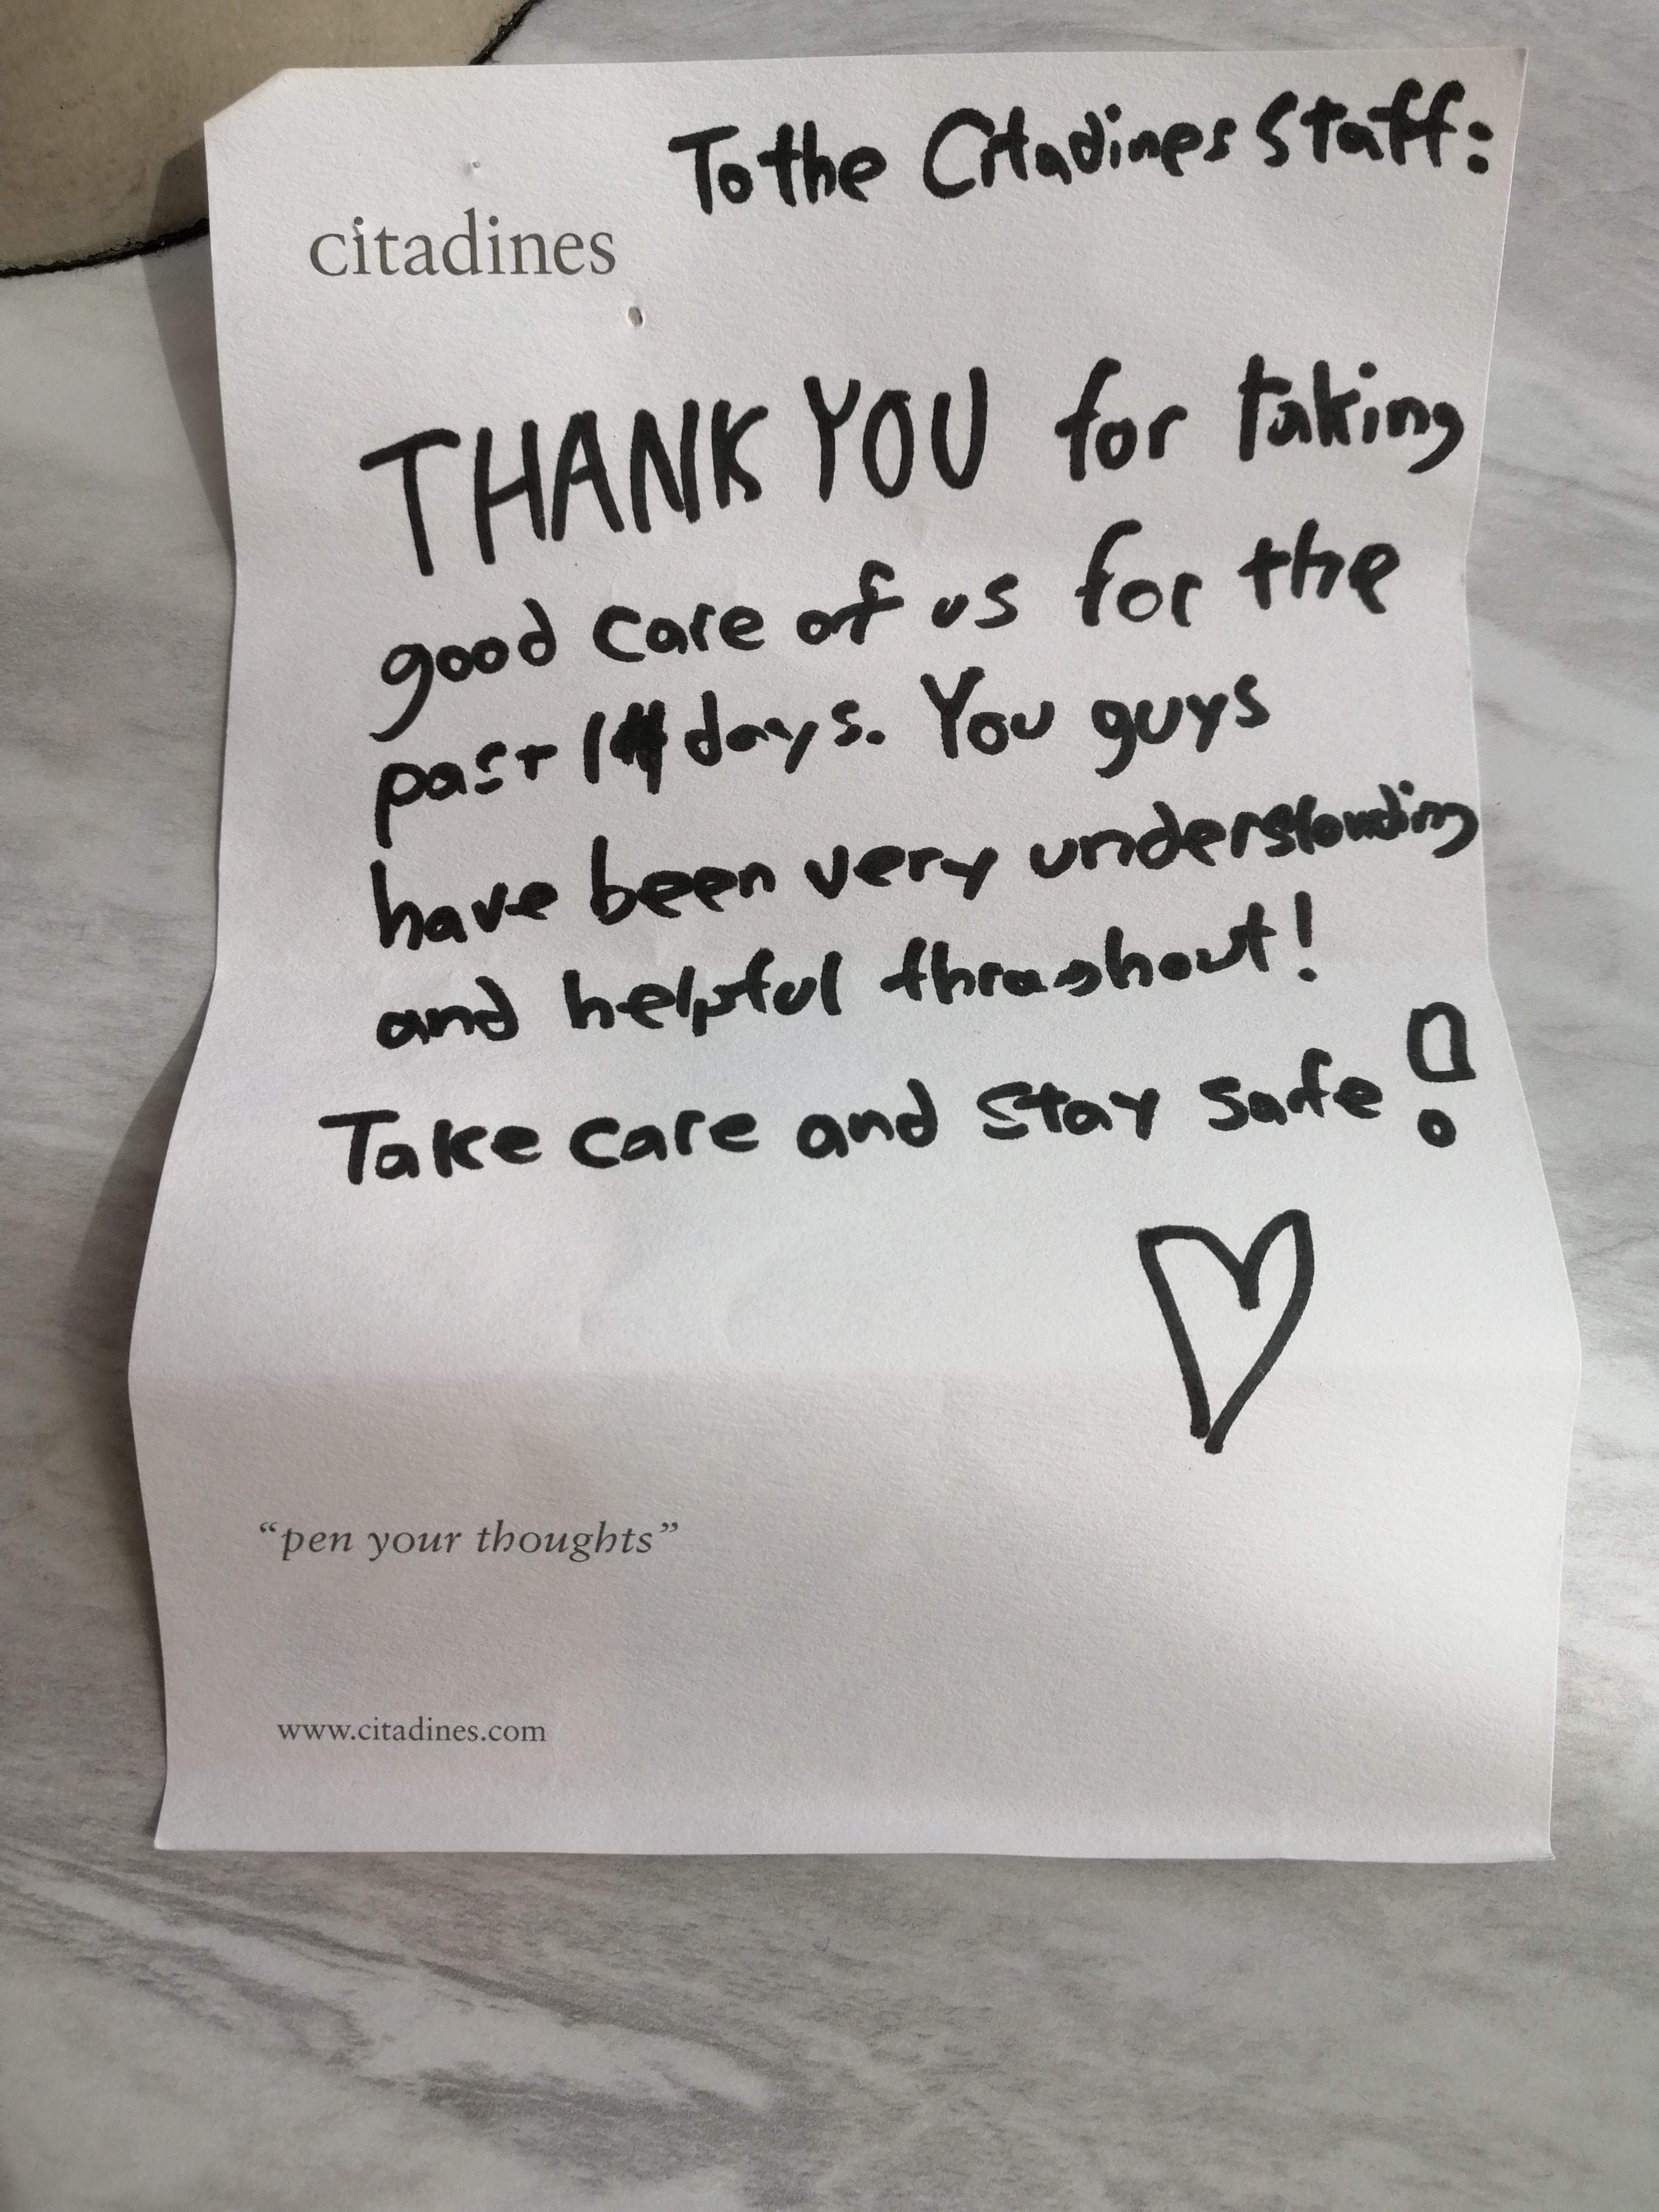 To the Citadines Staff:
citadines
THANK YOU for taking
good care of us for the
past 14 days. You guys
have been very understanding
and helpful throughout!
Take care and stay safe!
“pen your thoughts”
www.citadines.com